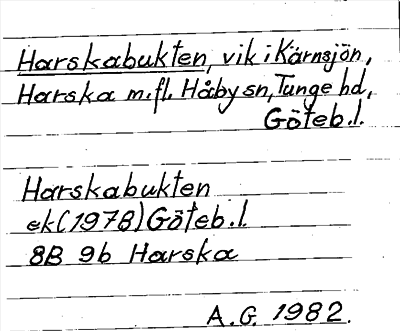 Harskabukten, vik i Kärnsjön,
Harska m.fl. Håby sn, Tunge hd,
Göteb.l.
Harskabukten
ek(1978) Göteb.l.
8B 9b Harska
A.G. 1982.